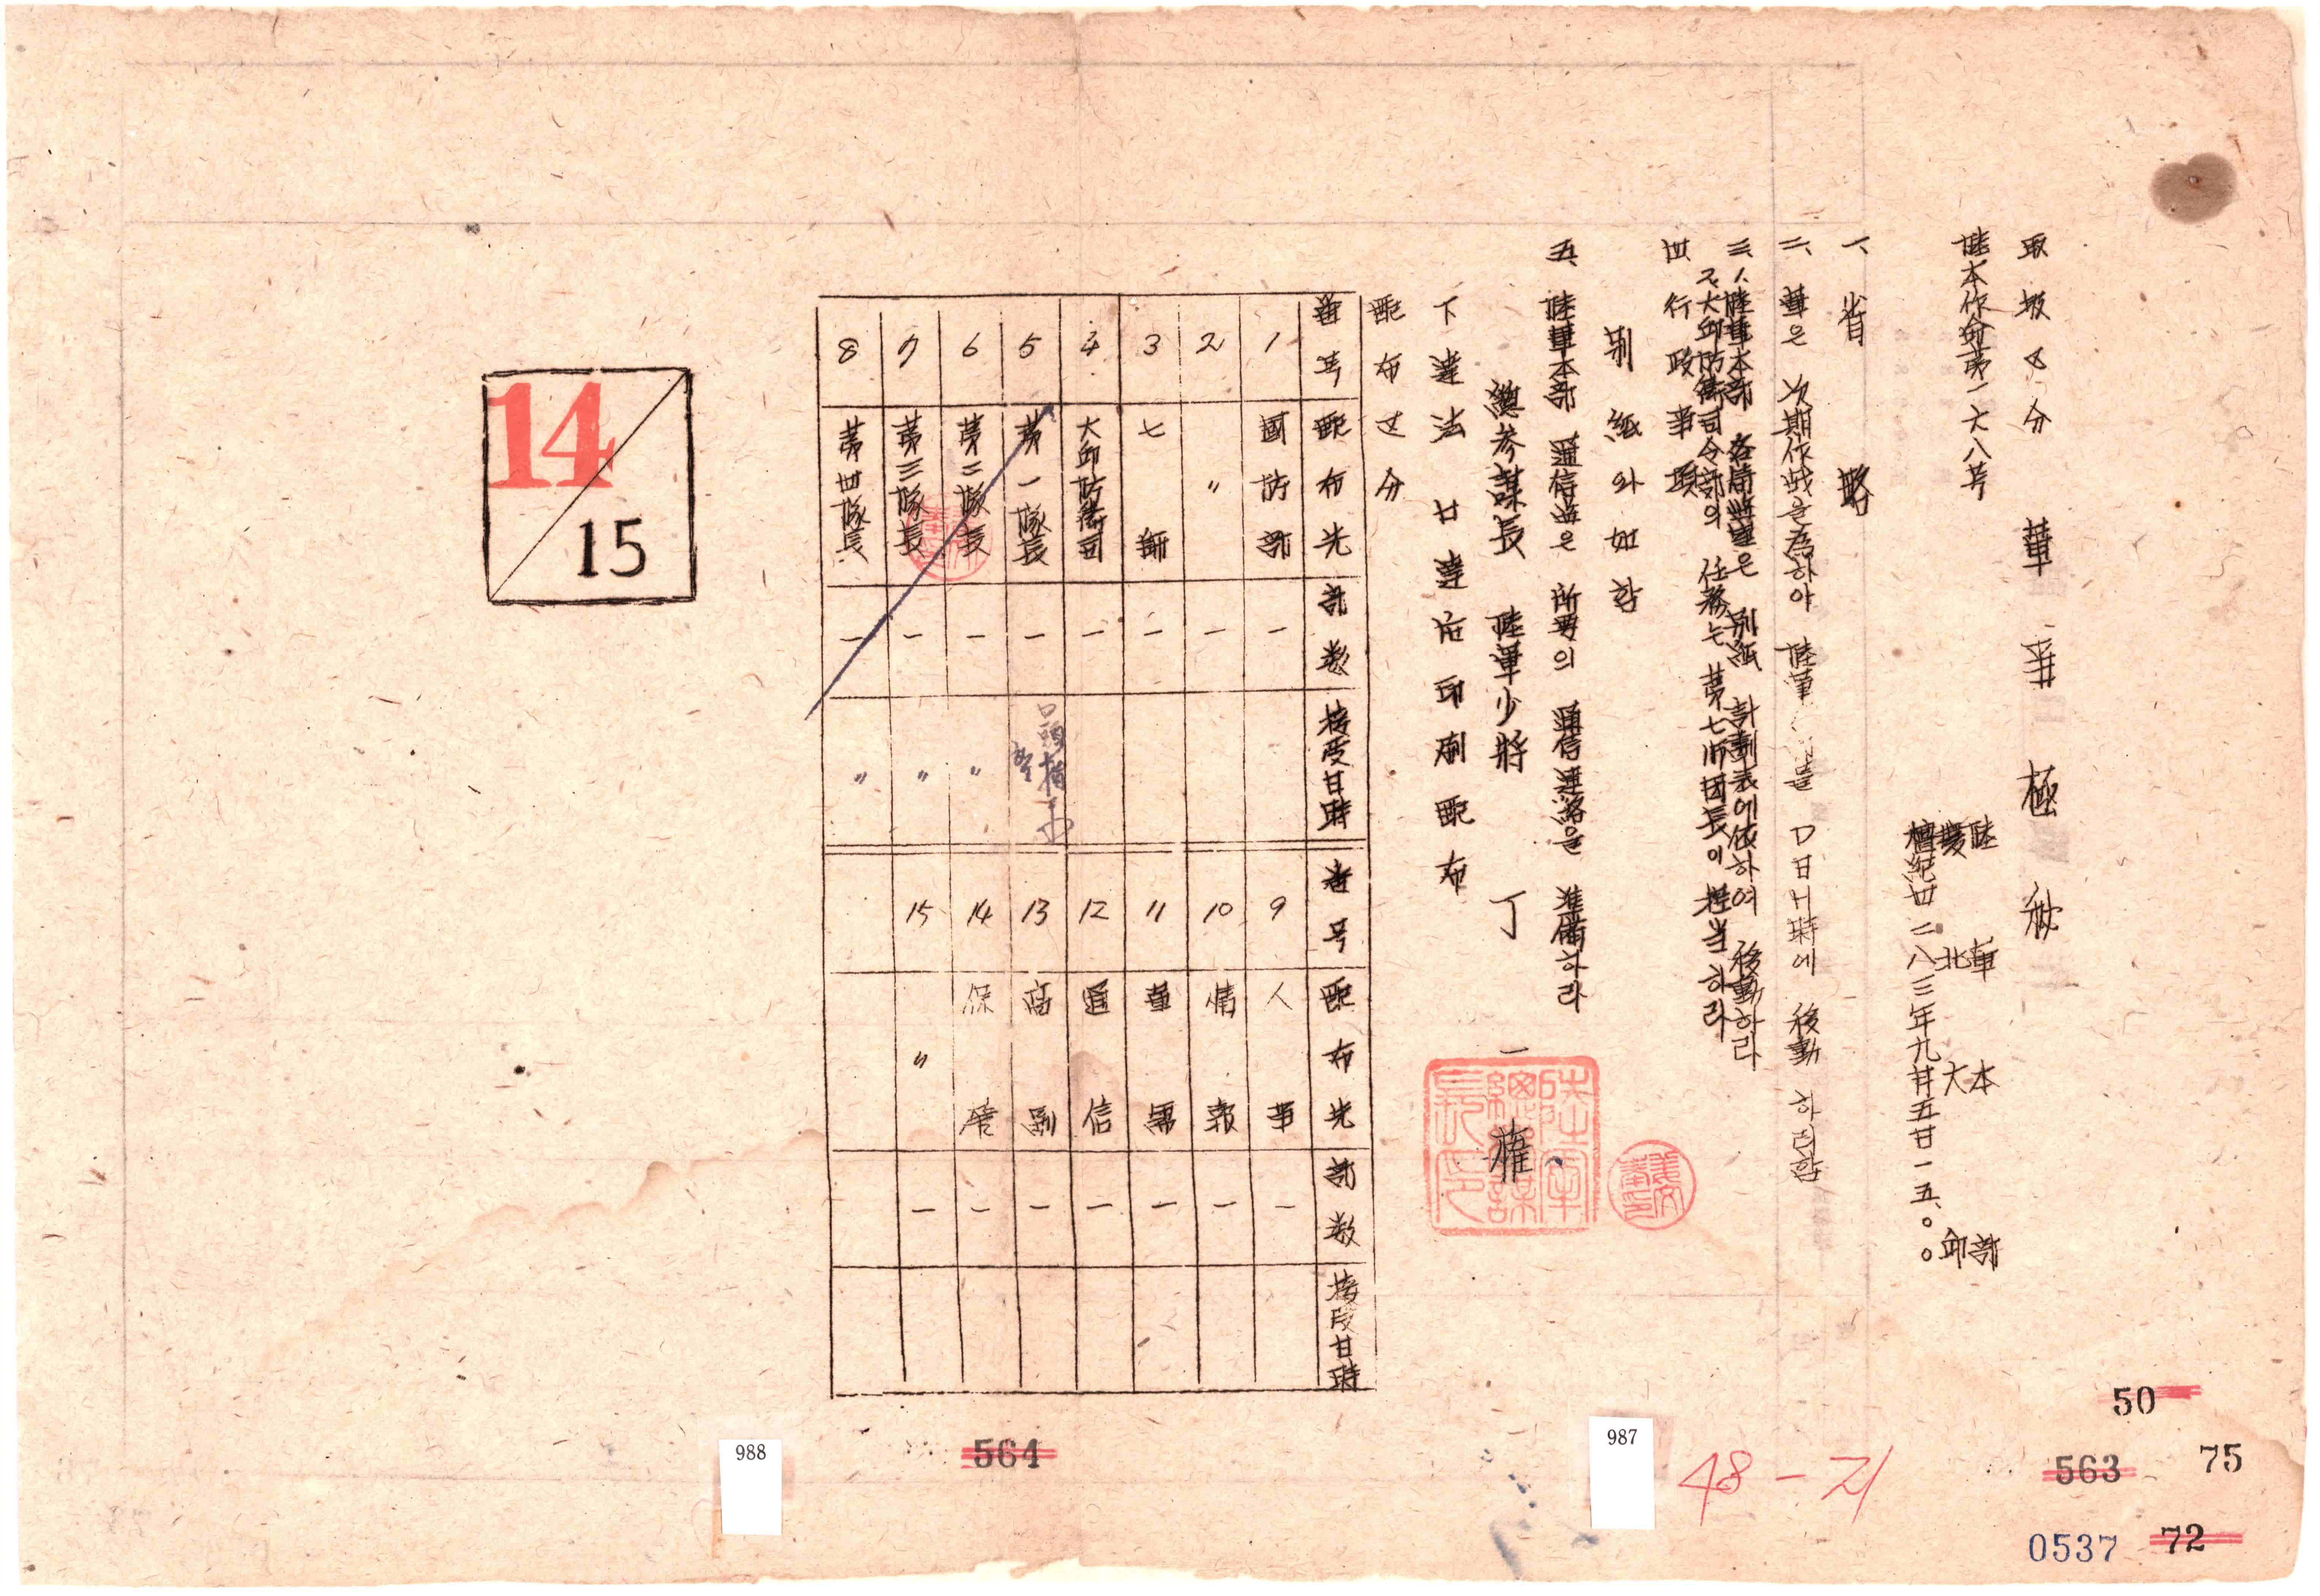 取扱区分 軍事極秘
陸本作命第一六八号
陸軍本部
慶北大邱
檀紀四二八三年九月五日一五、〇〇
一、省略
二、軍은 次期作战을 為하야 陸軍 을 D日H時에 移動 하려함
三、1、陸軍本部 各局監室은 別紙 計劃表에 依하여 移動하라
2、大邱防衛司令部의 任務는 第七师団長이 担当하라
四、行政事項
別紙와 如함
五、陸軍本部 通信監은 所要의 通信連絡을 準備하라
總参謀長 陸軍少將 丁一權
下達法 口達后印刷配布
配布区分
番号 配布先 部数 接受日時 番号 配布先 部数 接受日時
1 國防部 一 9 人事 一
2 〃 一 10 情報 一
3 七師 一 11 軍需 一
4 大邱防衛司 一 12 通信 一
5 第一隊長 一 13 高副 一
6 第二隊長 一 〃 14 保産 一
7 第三隊長 一 〃 15 〃 一
8 第四隊長 一 〃
14
15
988
564
987
48-21
50
563
75
0537
72